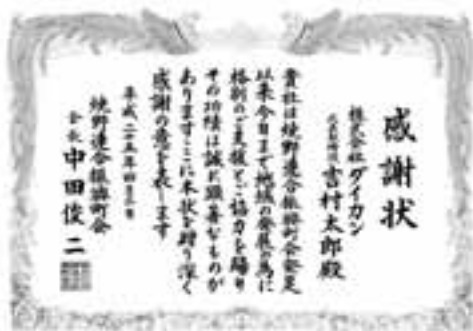 感謝状
株式会社ダイカン
代表取締役 吉村太郎殿
貴社は焼野連合振興町会発足
以来今日まで地域の発展の為に
格別のご支援とご協力を賜り
その功績は誠に顕著なものが
あります ここに本状を贈り深く
感謝の意を表します
平成二十五年四月
焼野連合振興町会
会長 中田俊二